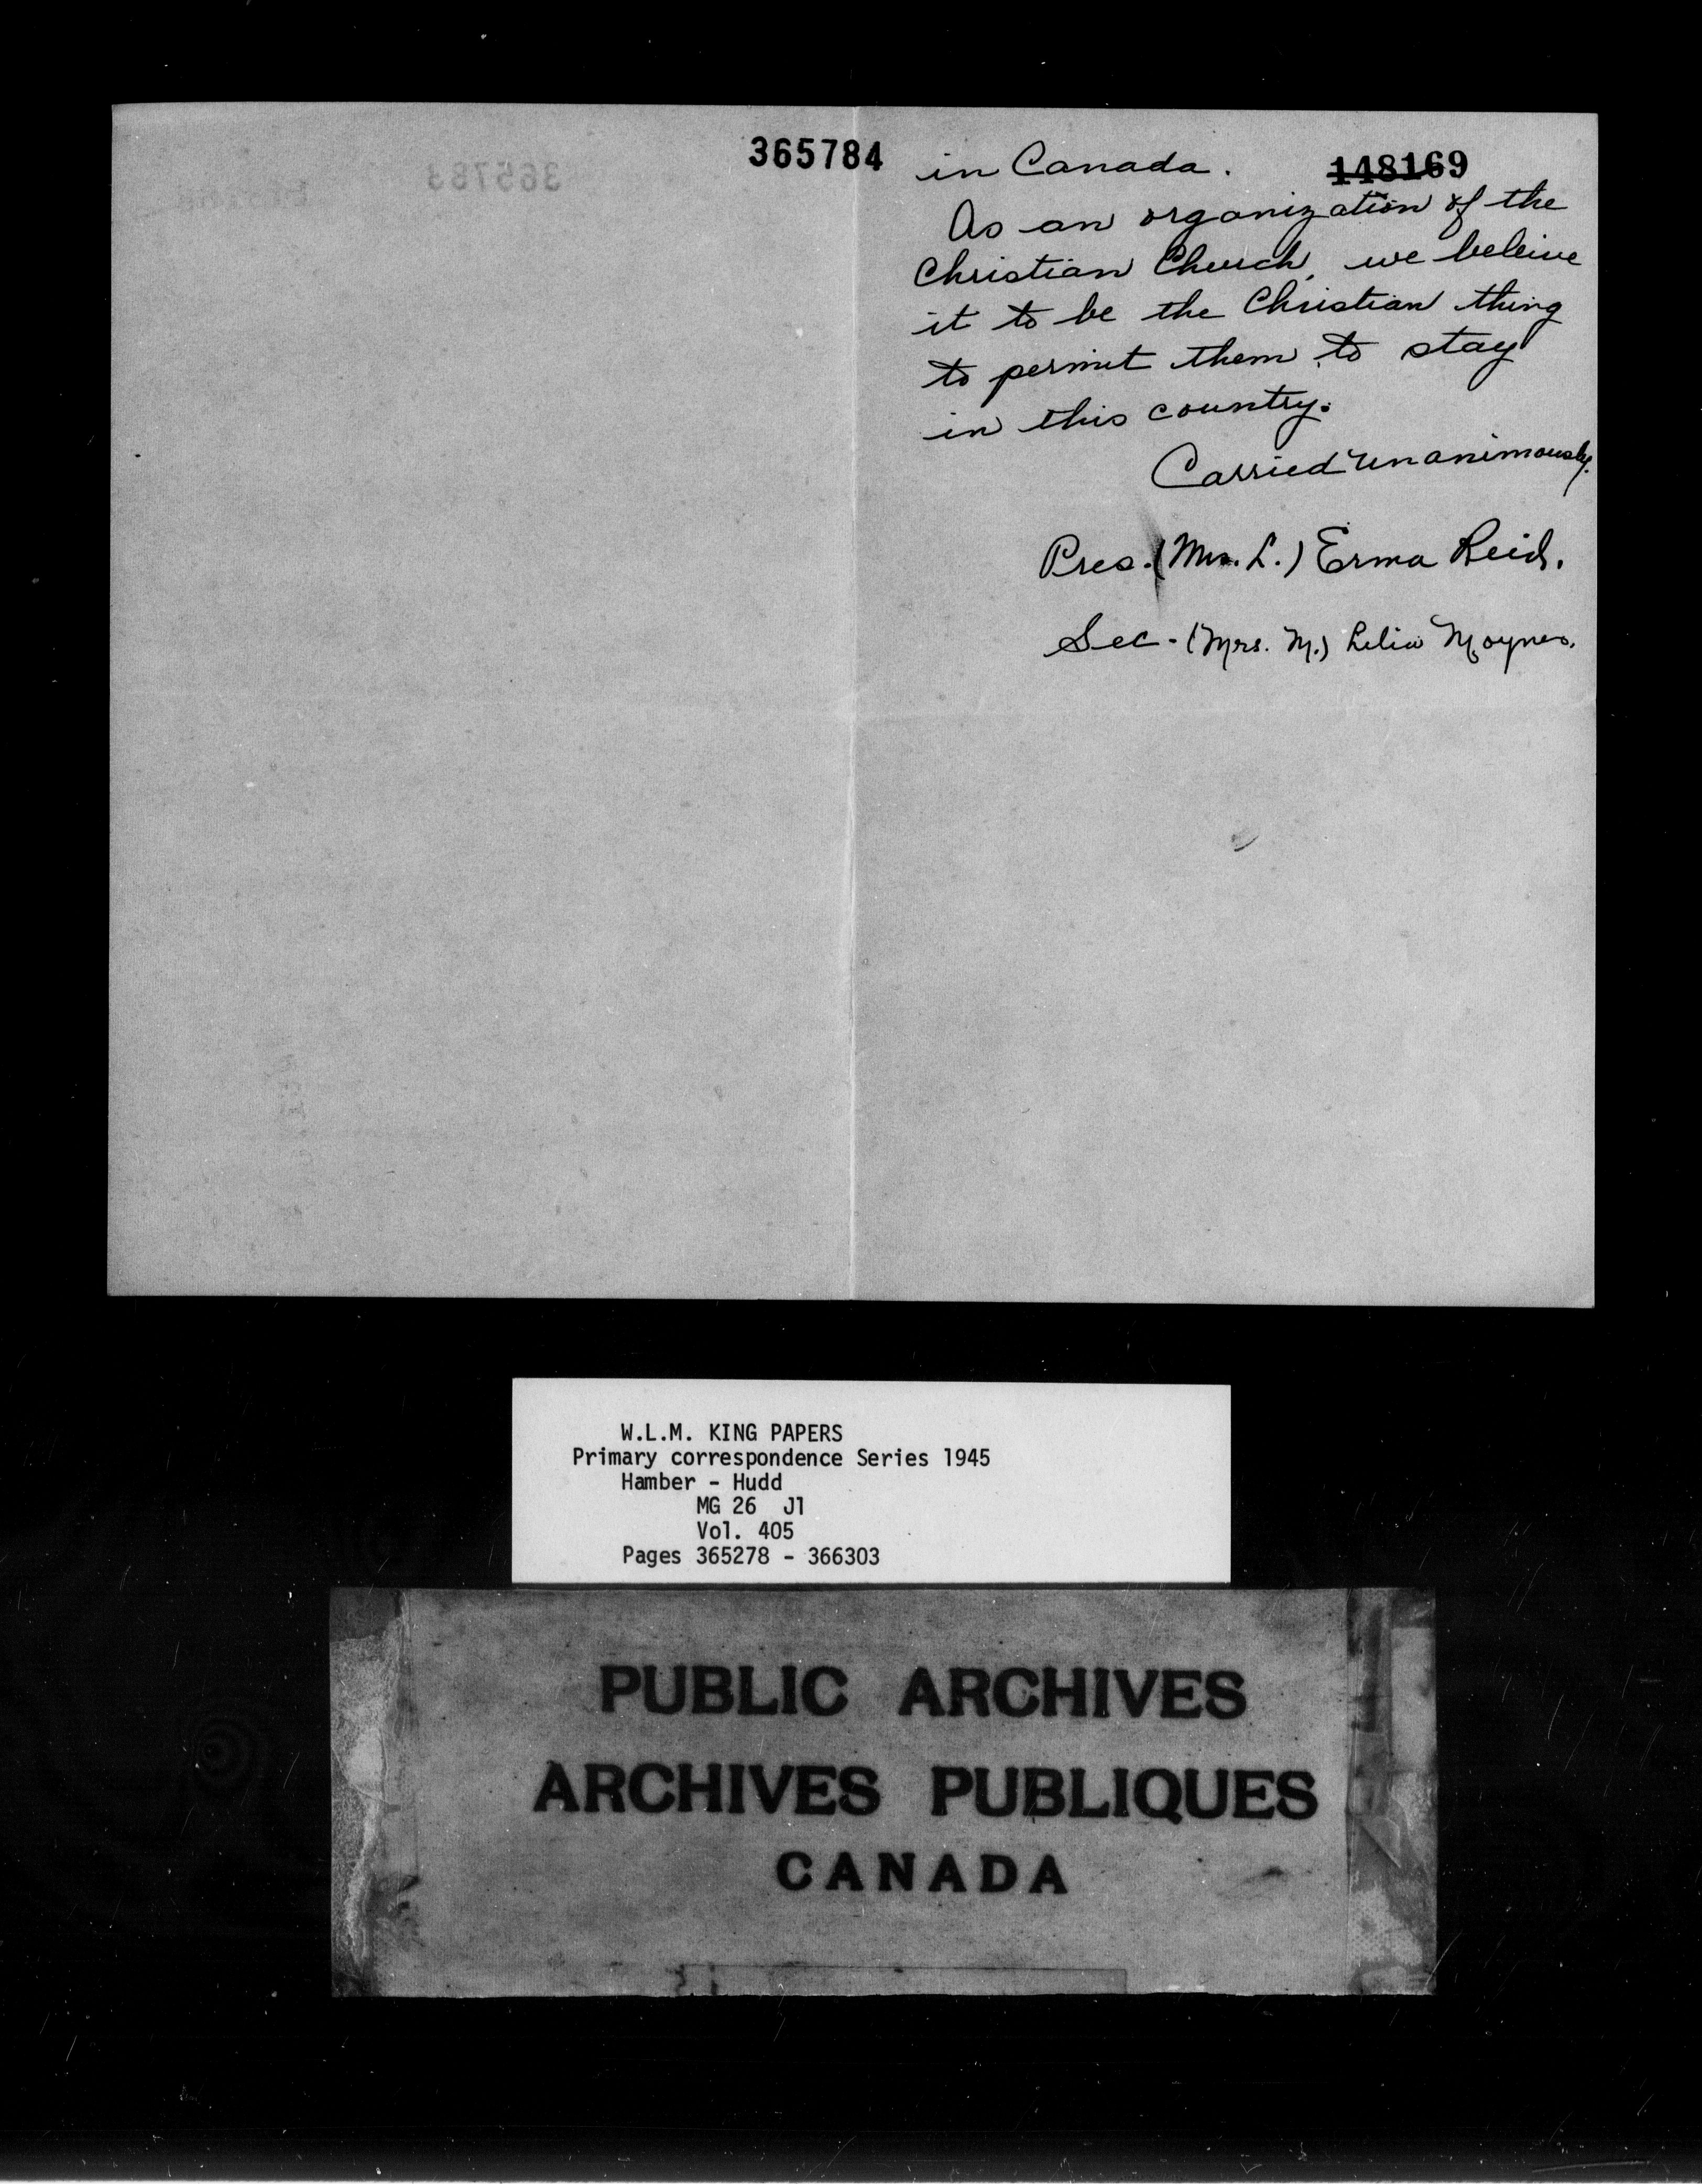 365784
in Canada.
148169
As an organization of the
Christian Church, we beleive
it to be the Christian thing
to permit them to stay
in this country.
Carried unanimously.
Pres. (Mrs. L.) Erma Reid.
Sec - (Mrs. M.) Lelia Moynes.
W.L.M. KING PAPERS
Primary correspondence Series 1945
Hamber - Hudd
MG 26 J1
Vol. 405
Pages 365278 - 366303
PUBLIC ARCHIVES
ARCHIVES PUBLIQUES
CANADA